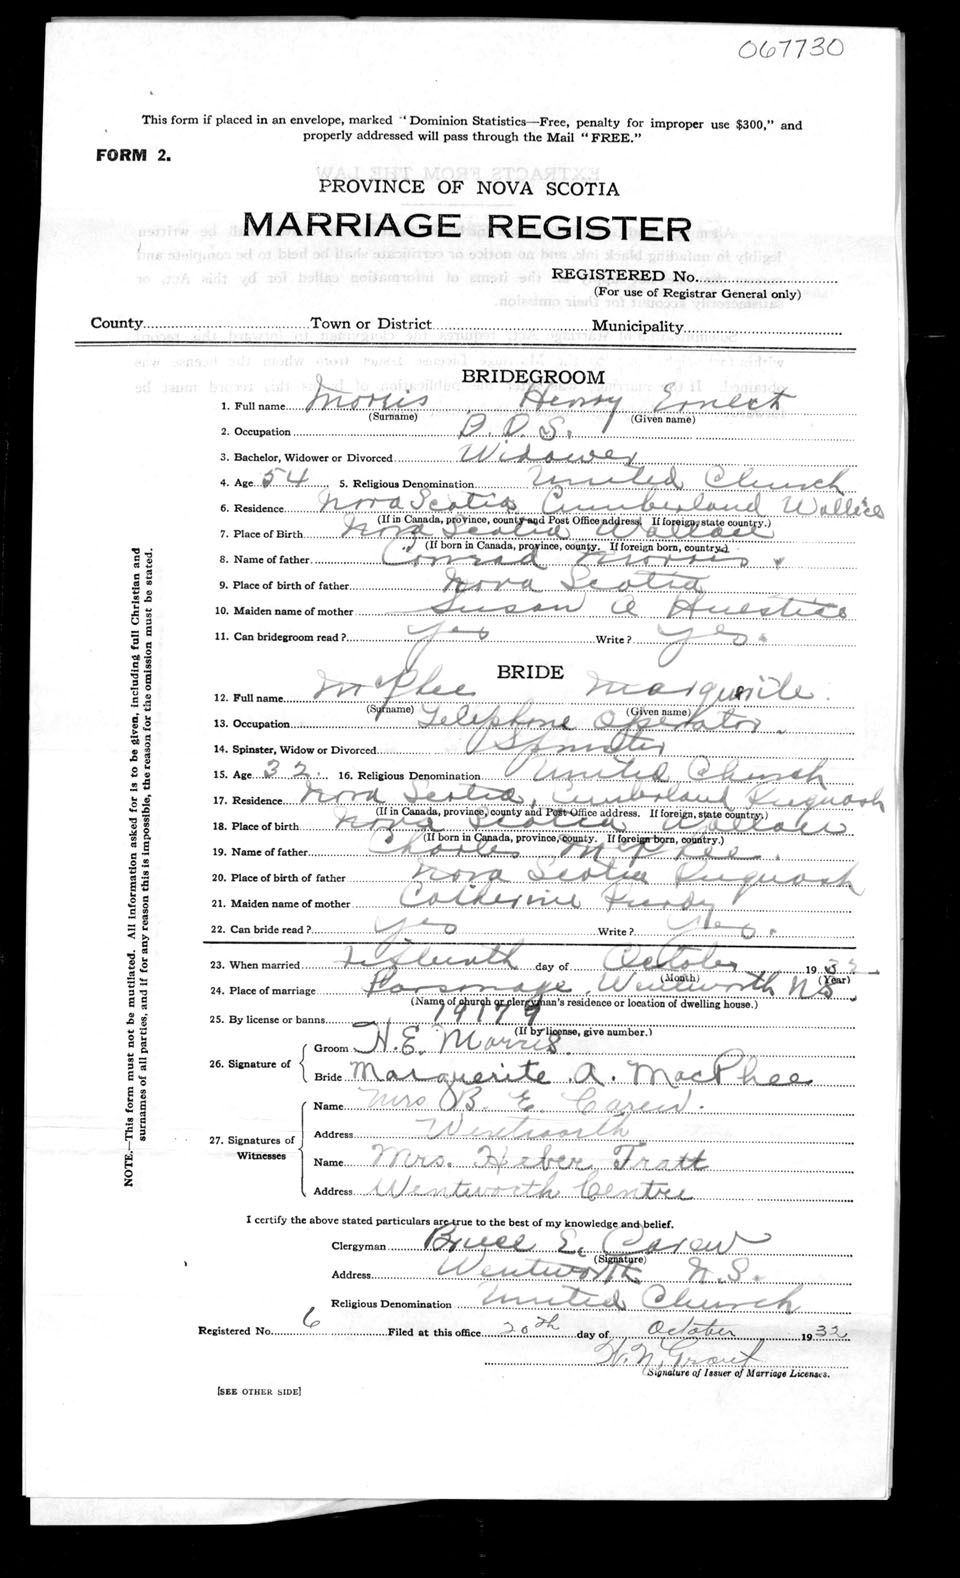 067730
This form if placed in an envelope, marked "Dominion Statistics—Free, penalty for improper use $300," and
properly addressed will pass through the Mail "FREE."
FORM 2.
PROVINCE OF NOVA SCOTIA
MARRIAGE REGISTER
REGISTERED No.
(For use of Registrar General only)
County Town or District Municipality
BRIDEGROOM
1. Full name Morris Henry Ernest
(Surname) (Given name)
2. Occupation D. D. S.
3. Bachelor, Widower or Divorced Widower
4. Age 54 5. Religious Denomination United Church
6. Residence Nova Scotia Cumberland Wallace
(If in Canada, province, county and Post Office address. If foreign, state country.)
7. Place of Birth Nova Scotia Wallace
(If born in Canada, province, county. If foreign born, country.)
8. Name of father Conrad Morris
9. Place of birth of father Nova Scotia
10. Maiden name of mother Susan A Huestis
11. Can bridegroom read? Yes Write? Yes.
BRIDE
12. Full name McPhee Marguerite.
(Surname) (Given name)
13. Occupation Telephone Operator.
14. Spinster, Widow or Divorced Spinster
15. Age 32. 16. Religious Denomination United Church
17. Residence Nova Scotia, Cumberland Pugwash
(If in Canada, province, county and Post Office address. If foreign, state country.)
18. Place of birth Nova Scotia Wallace
(If born in Canada, province, county. If foreign born, country.)
19. Name of father Charles McPhee.
20. Place of birth of father Nova Scotia Pugwash
21. Maiden name of mother Catherine Purdy
22. Can bride read? Yes Write? Yes.
23. When married Fifteenth day of October 1932
(Month) (Year)
24. Place of marriage Parsonage, Wentworth N S.
(Name of church or clergyman's residence or location of dwelling house.)
25. By license or banns 19179
(If by license, give number.)
26. Signature of Groom H. E. Morris.
Bride Marguerite A. MacPhee
27. Signatures of Witnesses
Name Mrs B. E. Carew.
Address Wentworth
Name Mrs. Heber Tratt
Address Wentworth Centre
I certify the above stated particulars are true to the best of my knowledge and belief.
Clergyman Bruce E. Carew
(Signature)
Address Wentworth N.S.
Religious Denomination United Church
Registered No. 6 Filed at this office 20th day of October 1932
H. N. Grant
Signature of Issuer of Marriage Licenses.
[SEE OTHER SIDE]
NOTE.—This form must not be mutilated. All information asked for is to be given, including full Christian and
surnames of all parties, and if for any reason this is impossible, the reason for the omission must be stated.